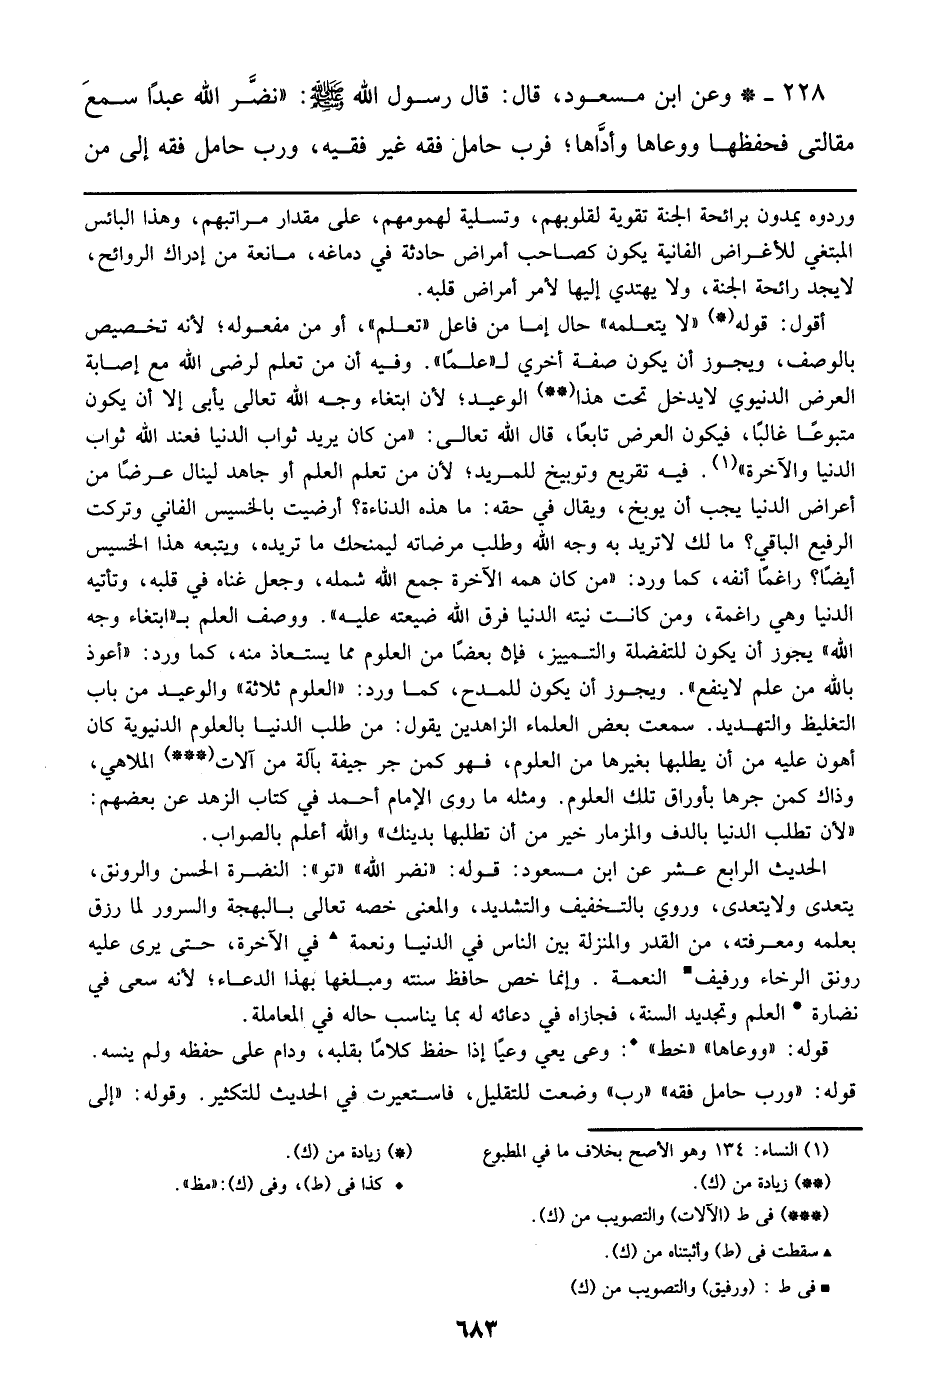 ٢٢٨ - * وعن ابن مسعود، قال: قال رسول الله ﷺ: «نضَّر الله عبدًا سمعَ
مقالتى فحفظها ووعاها وأدَّاها؛ فرب حامل فقه غير فقيه، ورب حامل فقه إلى من
وردوه يمدون برائحة الجنة تقوية لقلوبهم، وتسلية لهمومهم، على مقدار مراتبهم، وهذا البائس
المبتغي للأغراض الفانية يكون كصاحب أمراض حادثة في دماغه، مانعة من إدراك الروائح،
لايجد رائحة الجنة، ولا يهتدي إليها لأمر أمراض قلبه.
أقول: قوله(*) «لا يتعلمه» حال إما من فاعل «تعلم»، أو من مفعوله؛ لأنه تخصيص
بالوصف، ويجوز أن يكون صفة أخري لـ«علمًا». وفيه أن من تعلم لرضى الله مع إصابة
العرض الدنيوي لايدخل تحت هذا(**) الوعيد؛ لأن ابتغاء وجه الله تعالى يأبى إلا أن يكون
متبوعًا غالبًا، فيكون العرض تابعًا، قال الله تعالى: «من كان يريد ثواب الدنيا فعند الله ثواب
الدنيا والآخرة»(١). فيه تقريع وتوبيخ للمريد؛ لأن من تعلم العلم أو جاهد لينال عرضًا من
أعراض الدنيا يجب أن يوبخ، ويقال في حقه: ما هذه الدناءة؟ أرضيت بالخسيس الفاني وتركت
الرفيع الباقي؟ ما لك لاتريد به وجه الله وطلب مرضاته ليمنحك ما تريده، ويتبعه هذا الخسيس
أيضًا؟ راغمًا أنفه، كما ورد: «من كان همه الآخرة جمع الله شمله، وجعل غناه في قلبه، وتأتيه
الدنيا وهي راغمة، ومن كانت نيته الدنيا فرق الله ضيعته عليه». ووصف العلم بـ«ابتغاء وجه
الله» يجوز أن يكون للتفضلة والتمييز، فإن بعضًا من العلوم مما يستعاذ منه، كما ورد: «أعوذ
بالله من علم لاينفع». ويجوز أن يكون للمدح، كما ورد: «العلوم ثلاثة» والوعيد من باب
التغليظ والتهديد. سمعت بعض العلماء الزاهدين يقول: من طلب الدنيا بالعلوم الدنيوية كان
أهون عليه من أن يطلبها بغيرها من العلوم، فهو كمن جر جيفة بآلة من آلات(***) الملاهي،
وذاك كمن جرها بأوراق تلك العلوم. ومثله ما روى الإمام أحمد في كتاب الزهد عن بعضهم:
«لأن تطلب الدنيا بالدف والمزمار خير من أن تطلبها بدينك» والله أعلم بالصواب.
الحديث الرابع عشر عن ابن مسعود: قوله: «نضر الله» «تو»: النضرة الحسن والرونق،
يتعدى ولايتعدى، وروي بالتخفيف والتشديد، والمعنى خصه تعالى بالبهجة والسرور لما رزق
بعلمه ومعرفته، من القدر والمنزلة بين الناس في الدنيا ونعمة ▲ في الآخرة، حتى يرى عليه
رونق الرخاء ورفيف■ النعمة . وإنما خص حافظ سنته ومبلغها بهذا الدعاء؛ لأنه سعى في
نضارة • العلم وتجديد السنة، فجازاه في دعائه له بما يناسب حاله في المعاملة.
قوله: «ووعاها» «خط» ◆: وعى يعي وعيًا إذا حفظ كلامًا بقلبه، ودام على حفظه ولم ينسه.
قوله: «ورب حامل فقه» «رب» وضعت للتقليل، فاستعيرت في الحديث للتكثير. وقوله: «إلى
(١) النساء: ١٣٤ وهو الأصح بخلاف ما في المطبوع (*) زيادة من (ك).
(**) زيادة من (ك). ◆ كذا فى (ط)، وفى (ك):«مظ».
(***) فى ط (الآلات) والتصويب من (ك).
▲ سقطت فى (ط) وأثبتناه من (ك).
■ فى ط : (ورفيق) والتصويب من (ك)
٦٨٣